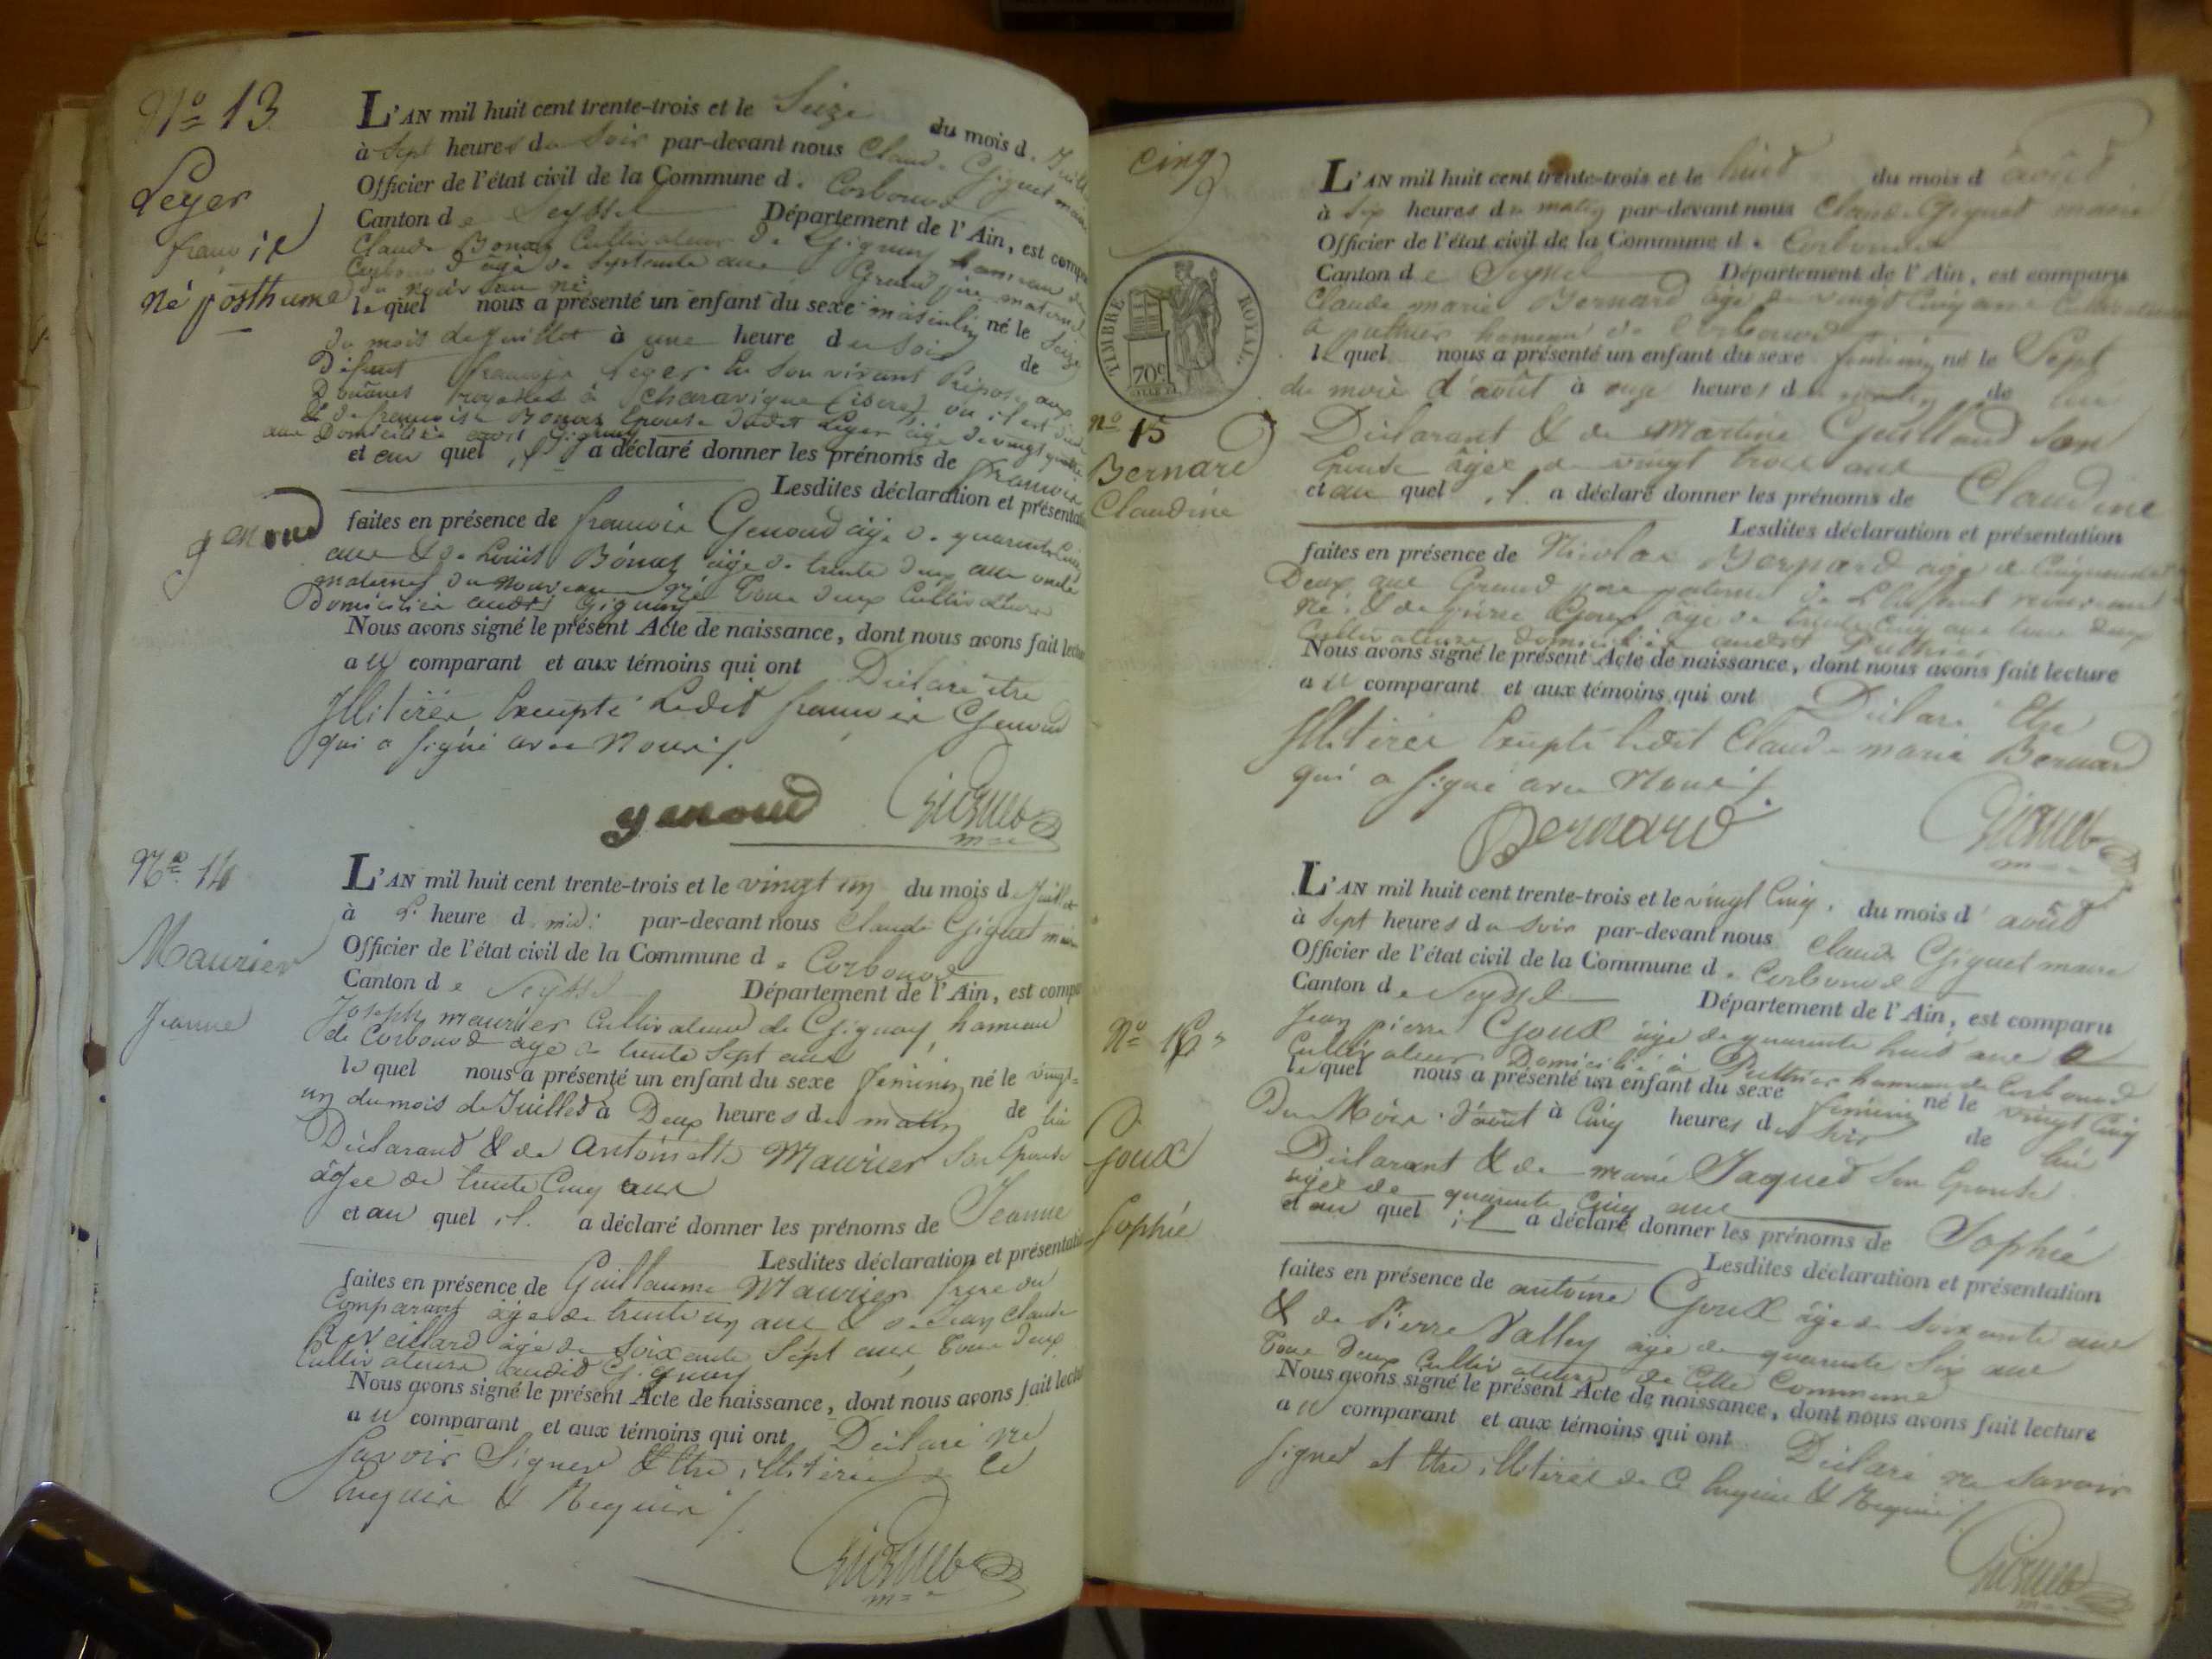 N.o 13
Leger
françois
né posthume
L'AN mil huit cent trente-trois et le Seize du mois de Juillet
à Sept heures du Soir par-devant nous Claude Gignet maire
Officier de l'état civil de la Commune de Corbonod
Canton de Seyssel Département de l'Ain, est comparu
Claude Bonaz Cultivateur de Gignay hameau de
Corbonod âgé de Septante ans Grand père maternel
du nouveau né
lequel nous a présenté un enfant du sexe masculin né le Seize
du mois de Juillet à une heure du Soir de
Défunt françois Leger en Son vivant Préposé aux
Douanes royales à Charavigne (isere) où il est
& de françoise Bonaz Epouse dudit Leger âgée de vingt quatre
ans Domiciliée audit Gignay
et au quel il a déclaré donner les prénoms de françois
Lesdites déclaration et présentation
genoud
faites en présence de françois Genoud âgé de quarante Cinq
ans & de Louis Bonaz âgé de trente deux ans oncle
maternel du Nouveau né Tous deux Cultivateurs
Domiciliés audit Gignay
Nous avons signé le présent Acte de naissance, dont nous avons fait lecture
au comparant et aux témoins qui ont Déclaré être
Illitérés Excepté Ledit françois Genoud
qui a signé avec Nous ./.
genoud Gignet
m.re
N.o 14
Maurier
Jeanne
L'AN mil huit cent trente-trois et le vingt un du mois de Juillet
à L' heure de midi par-devant nous Claude Gignet maire
Officier de l'état civil de la Commune de Corbonod
Canton de Seyssel Département de l'Ain, est comparu
Joseph Maurier Cultivateur de Gignay, hameau
de Corbonod âgé de trente Sept ans
lequel nous a présenté un enfant du sexe féminin né le vingt=
un du mois de Juillet à Deux heures du matin de lui
Déclarant & de Antoinette Maurier Son Epouse
âgée de trente Cinq ans
et au quel il a déclaré donner les prénoms de Jeanne
Lesdites déclaration et présentation
faites en présence de Guillaume Maurier frere du
Comparant âgé de trente un ans & de Jean Claude
Reveillard âgé de Soixante Sept ans Tous deux
Cultivateurs audit Gignay
Nous avons signé le présent Acte de naissance, dont nous avons fait lecture
au comparant et aux témoins qui ont Déclaré ne
Savoir Signer & être illitérés de ce
Enquis & Requis ./.
Gignet
m.re
Cinq
TIMBRE ROYAL
70c
N.o 15
Bernard
Claudine
L'AN mil huit cent trente-trois et le huit du mois d'août
à Six heures du matin par-devant nous Claude Gignet maire
Officier de l'état civil de la Commune de Corbonod
Canton de Seyssel Département de l'Ain, est comparu
Claude marie Bernard âgé de vingt Cinq ans Cultivateur
à puthier hameau de Corbonod
lequel nous a présenté un enfant du sexe féminin né le Sept
du mois d'août à onze heures du matin de lui
Déclarant & de Martine Guilland Son
Epouse âgée de vingt trois ans
et au quel il a déclaré donner les prénoms de Claudine
Lesdites déclaration et présentation
faites en présence de Nicolas Bernard âgé de Cinquante
Deux ans Grand père paternel de L'Enfant nouveau
Né, & de pierre Goux âgé de trente Cinq ans tous deux
Cultivateurs domiciliés audit Puthier
Nous avons signé le présent Acte de naissance, dont nous avons fait lecture
au comparant et aux témoins qui ont Déclaré Etre
Illitérés Excepté Ledit Claude marie Bernard
qui a signé avec Nous ./.
Bernard Gignet
m.re
N.o 16
Goux
Sophie
L'AN mil huit cent trente-trois et le vingt Cinq du mois d'août
à Sept heures du Soir par-devant nous Claude Gignet maire
Officier de l'état civil de la Commune de Corbonod
Canton de Seyssel Département de l'Ain, est comparu
Jean pierre Goux âgé de quarante huit ans
Cultivateur Domicilié à Puthier hameau de Corbonod
lequel nous a présenté un enfant du sexe féminin né le vingt Cinq
Du Mois d'août à Cinq heures du Soir de lui
Déclarant & de marie Jaquet Son Epouse
âgée de quarante Cinq ans
et au quel il a déclaré donner les prénoms de Sophie
Lesdites déclaration et présentation
faites en présence de antoine Goux âgé de Soixante ans
& de Pierre Valley âgé de quarante Six ans
Tous deux Cultivateurs de Cette Commune
Nous avons signé le présent Acte de naissance, dont nous avons fait lecture
au comparant et aux témoins qui ont Déclaré ne Savoir
Signer et être illitérés de Ce Enquis & Requis ./.
Gignet
m.re